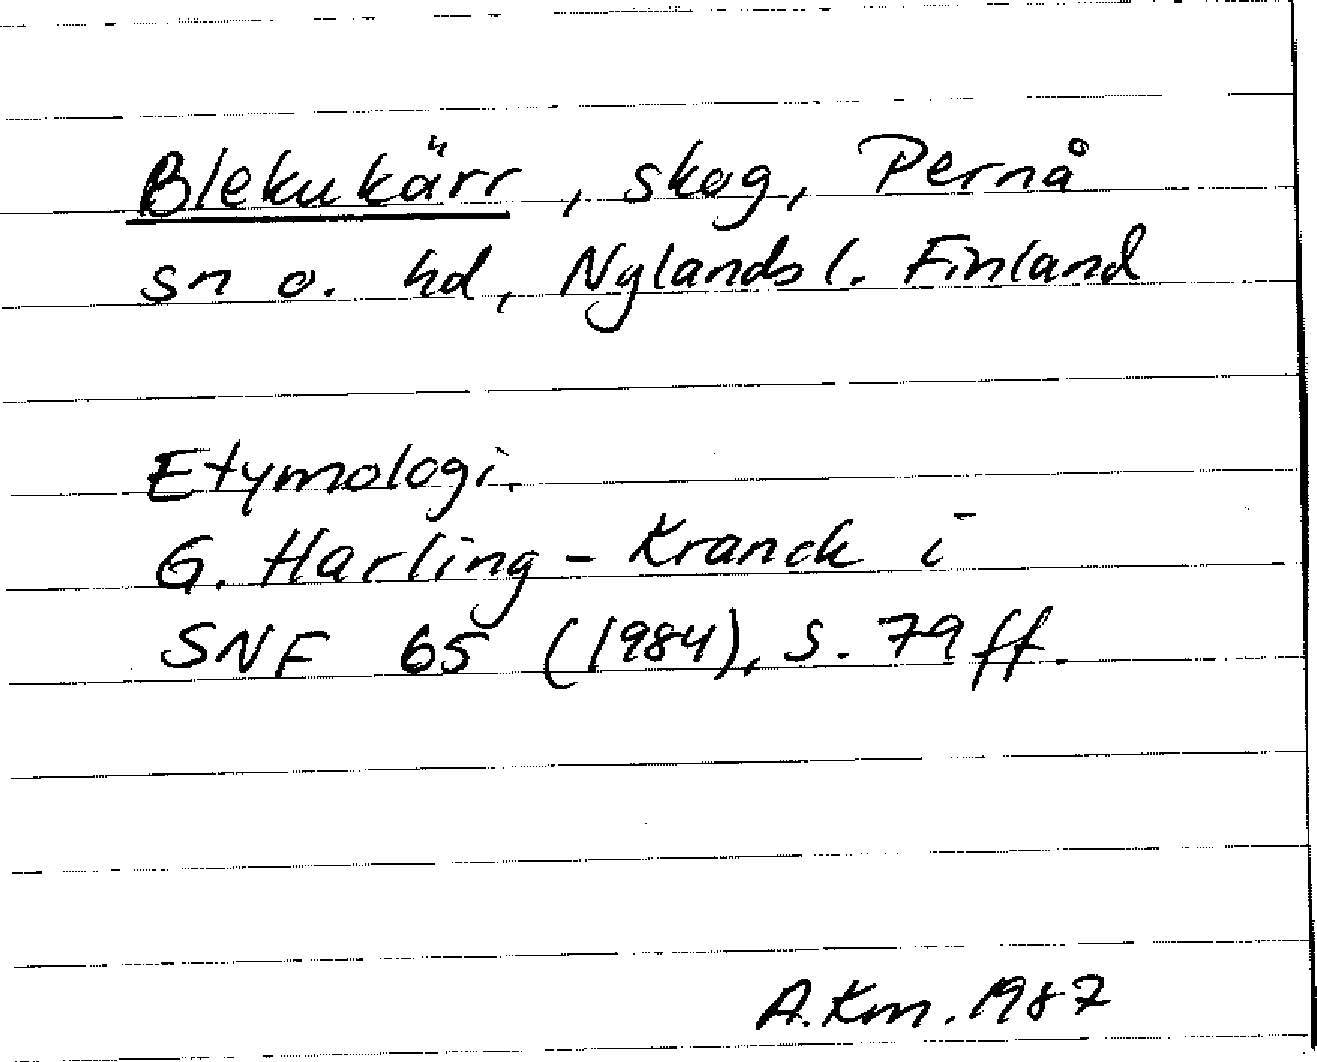 Blekukärr, skog, Pernå
sn o. hd, Nylands l. Finland
Etymologi.
G. Harling-Kranck i
SNF 65 (1984), s. 79 ff.
A.Km. 1987